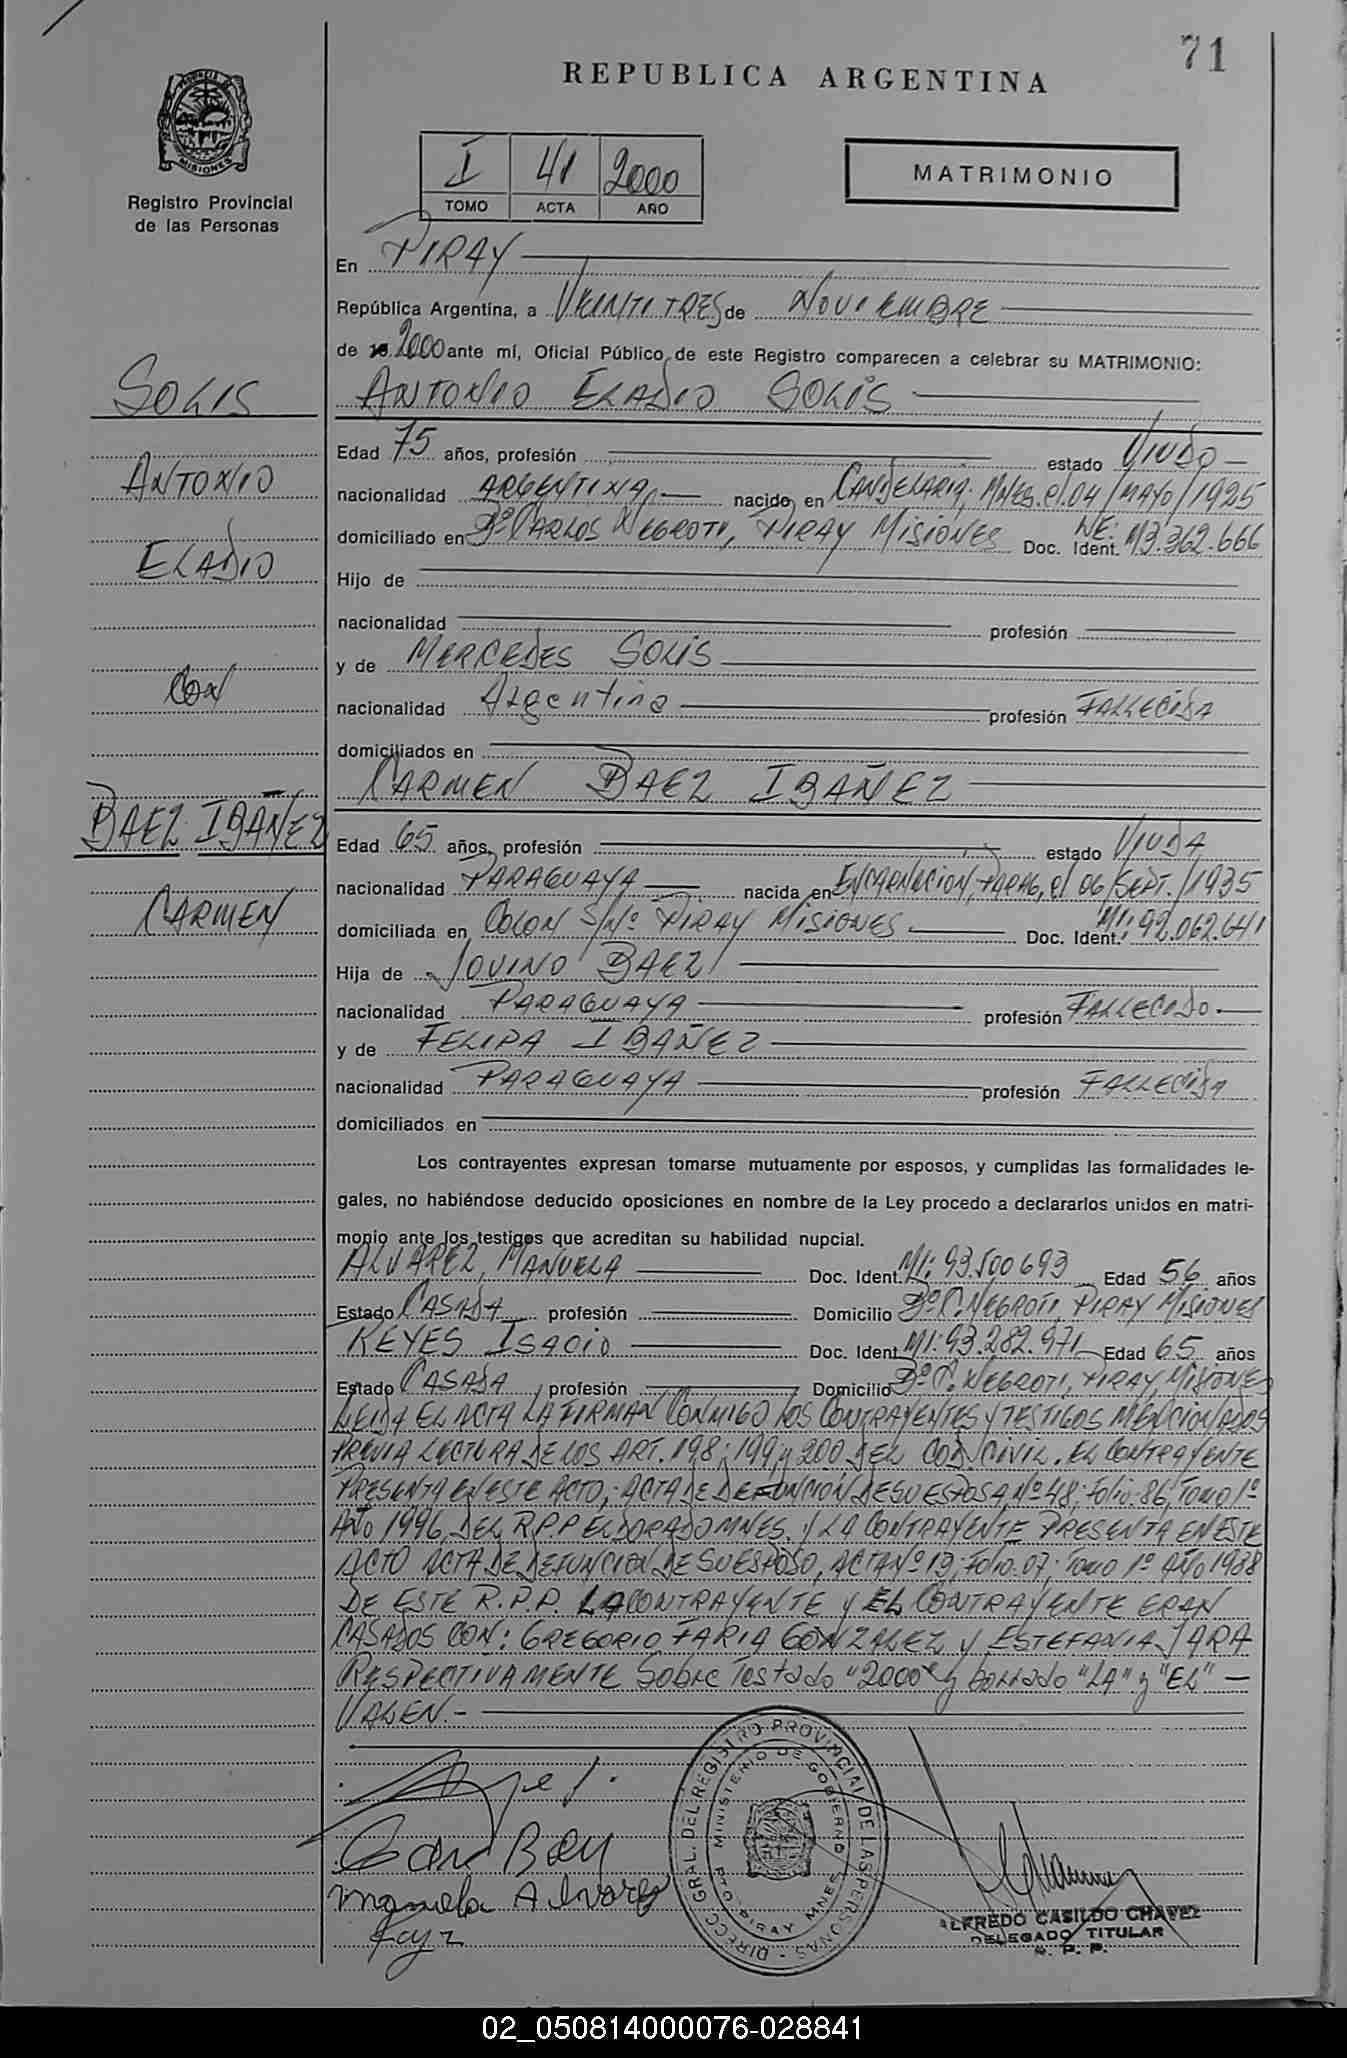 71
REPUBLICA ARGENTINA
PROVINCIA DE MISIONES
Registro Provincial
de las Personas
I 41 2000
TOMO ACTA AÑO
MATRIMONIO
En PIRAY
República Argentina, a VEINTITRES de NOVIEMBRE
de 2000 ante mí, Oficial Público de este Registro comparecen a celebrar su MATRIMONIO:
SOLIS
ANTONIO
ELADIO
CON
BAEZ IBAÑEZ
CARMEN
ANTONIO ELADIO SOLIS
Edad 75 años, profesión estado VIUDO
nacionalidad ARGENTINA nacido en CANDELARIA. MNES. el 04/MAYO/1925
domiciliado en Bº CARLOS NEGROTI, PIRAY MISIONES Doc. Ident. M 3.362.666
Hijo de
nacionalidad profesión
y de MERCEDES SOLIS
nacionalidad Argentina profesión FALLECIDA
domiciliados en
CARMEN BAEZ IBAÑEZ
Edad 65 años, profesión estado VIUDA
nacionalidad PARAGUAYA nacida en ENCARNACION, PARAG, el 06/SEPT./1935
domiciliada en COLON S/Nº PIRAY MISIONES Doc. Ident. MI: 92.062.641
Hija de JOVINO BAEZ
nacionalidad PARAGUAYA profesión FALLECIDO
y de FELIPA IBAÑEZ
nacionalidad PARAGUAYA profesión FALLECIDA
domiciliados en
Los contrayentes expresan tomarse mutuamente por esposos, y cumplidas las formalidades le-
gales, no habiéndose deducido oposiciones en nombre de la Ley procedo a declararlos unidos en matri-
monio ante los testigos que acreditan su habilidad nupcial.
ALVAREZ, MANUELA Doc. Ident. MI: 93.500693 Edad 56 años
Estado CASADA profesión Domicilio Bº C. NEGROTI, PIRAY MISIONES
REYES ISACIO Doc. Ident. MI: 93.282.971 Edad 65 años
Estado CASADA profesión Domicilio Bº C. NEGROTI, PIRAY, MISIONES
LEIDA EL ACTA LA FIRMAN CONMIGO LOS CONTRAYENTES Y TESTIGOS MENCIONADOS
PREVIA LECTURA DE LOS ART. 198; 199 y 200 DEL COD. CIVIL. EL CONTRAYENTE
PRESENTA EN ESTE ACTO, ACTA DE DEFUNCION DE SU ESPOSA, Nº 48; Folio: 86, Tomo 1º
AÑO 1996, DEL R.P.P ELDORADO MNES. Y LA CONTRAYENTE PRESENTA EN ESTE
ACTO ACTA DE DEFUNCION DE SU ESPOSO, ACTA Nº 19; Folio: 07; Tomo 1º AÑO 1988
DE ESTE R.P.P. LA CONTRAYENTE Y EL CONTRAYENTE ERAN
CASADOS CON: GREGORIO FARIA GONZALEZ Y ESTEFANIA JARA
RESPECTIVAMENTE Sobre Testado "2000" y borrado "LA" y "EL" —
VALEN.-
Manuela Alvarez
DIRECC. GRAL. DEL REGISTRO PROVINCIAL DE LAS PERSONAS
MINISTERIO DE GOBIERNO
PTO. PIRAY MNES
ALFREDO CASILDO CHAVEZ
DELEGADO TITULAR
R. P. P.
02_050814000076-028841